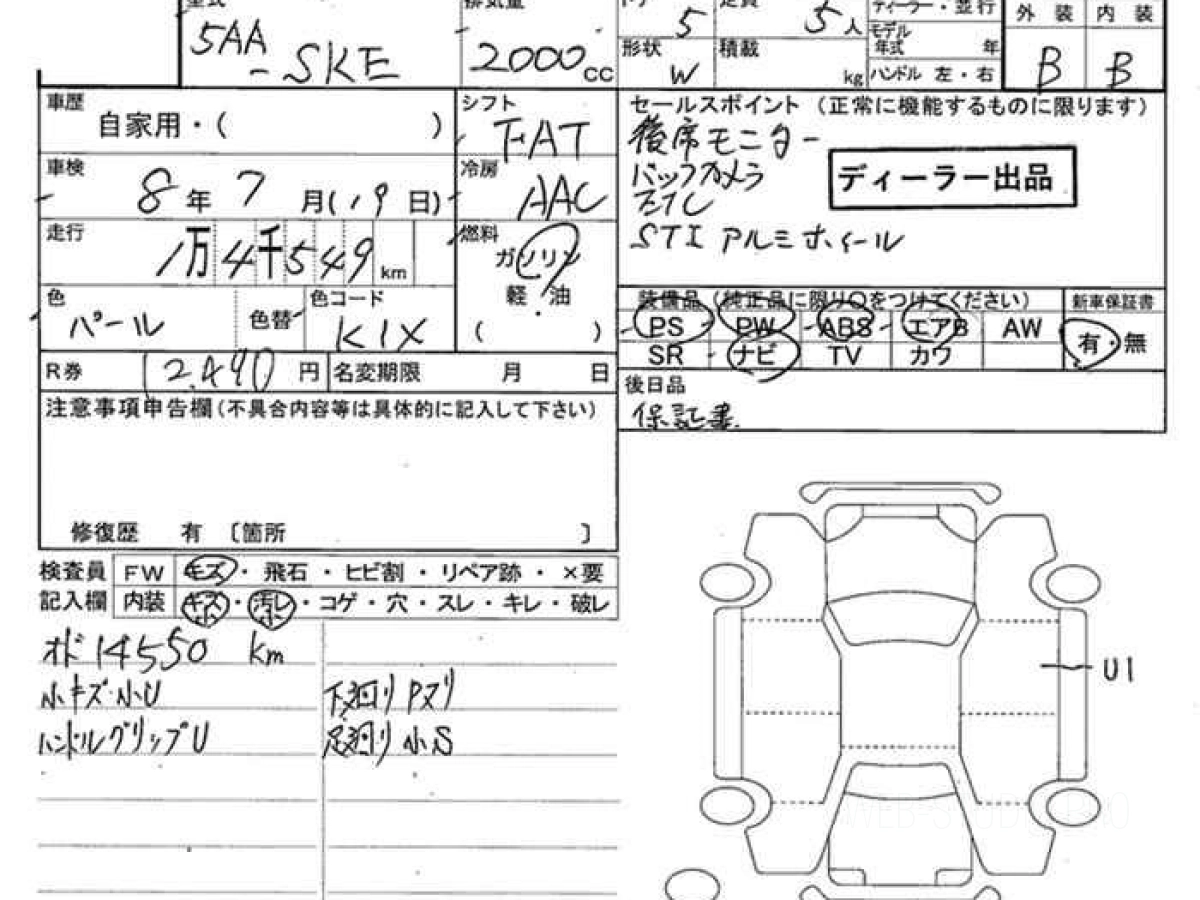 型式 排気量 ドア 定員 ディーラー・並行 外装 内装
5AA
-SKE 2000cc 5 5人 モデル年式 年
形状 W 積載 kg ハンドル 左・右 B B
車歴 自家用・( )
シフト FAT
車検 8年7月(19日)
冷房 AAC
走行 1万4千549km
燃料 ガソリン
軽・油
( )
色 パール 色替 色コード K1X
R券 12,490円 名変期限 月 日
セールスポイント(正常に機能するものに限ります)
後席モニター
バックカメラ
ETC
STI アルミホイール
ディーラー出品
装備品(純正品に限り○をつけてください) 新車保証書
PS PW ABS エアB AW 有・無
SR ナビ TV カワ
後日品
保証書
注意事項申告欄(不具合内容等は具体的に記入して下さい)
修復歴 有 〔箇所 〕
検査員 FW キズ・飛石・ヒビ割・リペア跡・×要
記入欄 内装 キズ・汚レ・コゲ・穴・スレ・キレ・破レ
小 小
オド 14550 km
小キズ・小U 下廻り Pヌリ
ハンドルグリップU 足廻り 小S
U1